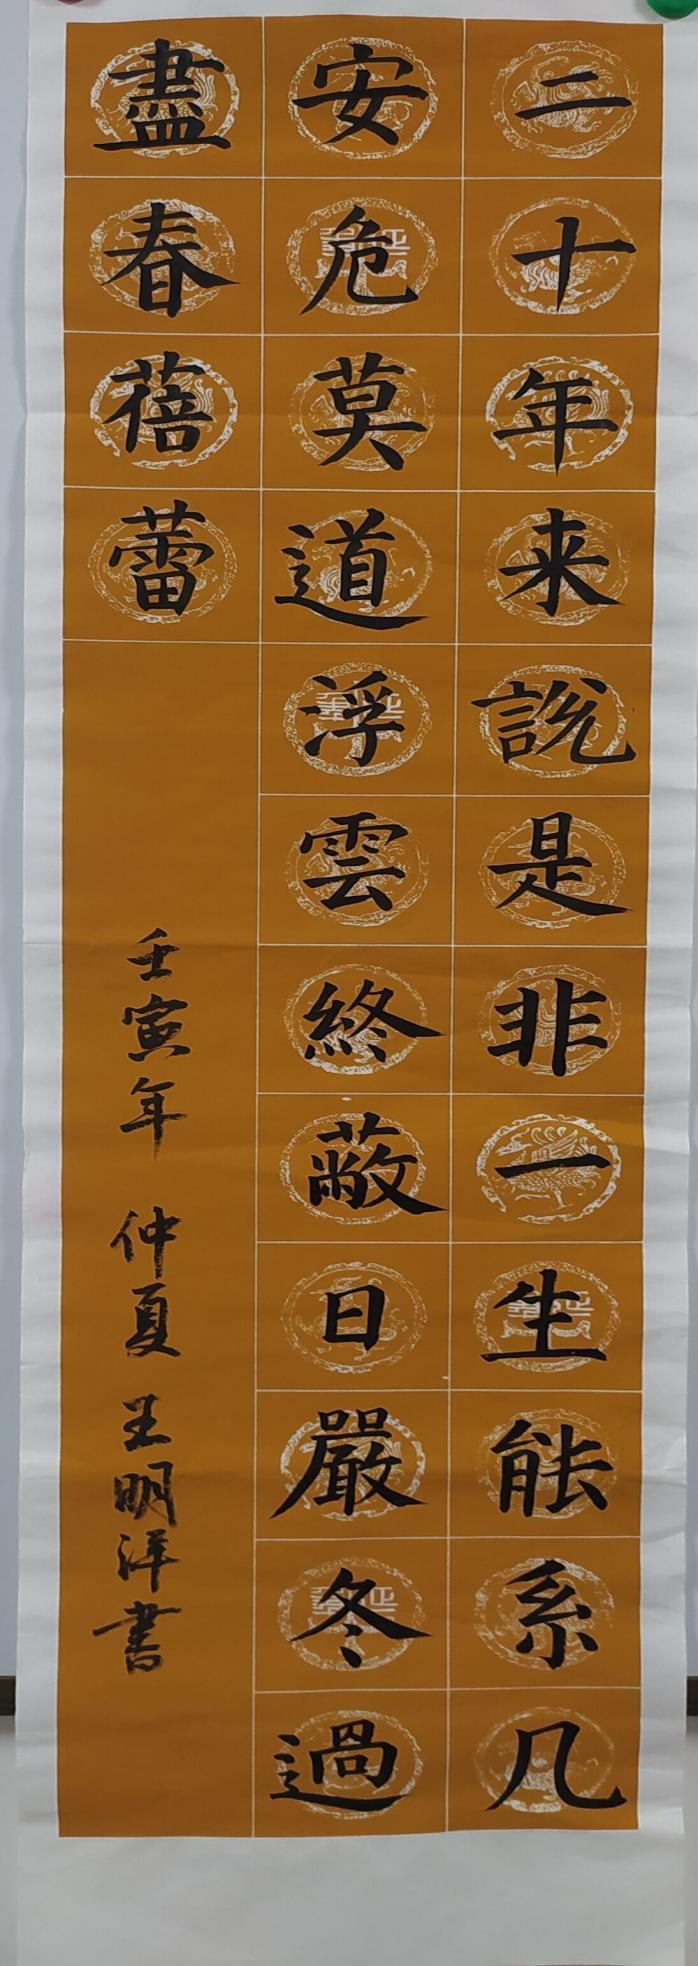 二十年来説是非一生能系几
安危莫道浮雲終蔽日嚴冬過
盡春蓓蕾
壬寅年 仲夏 王明洋書